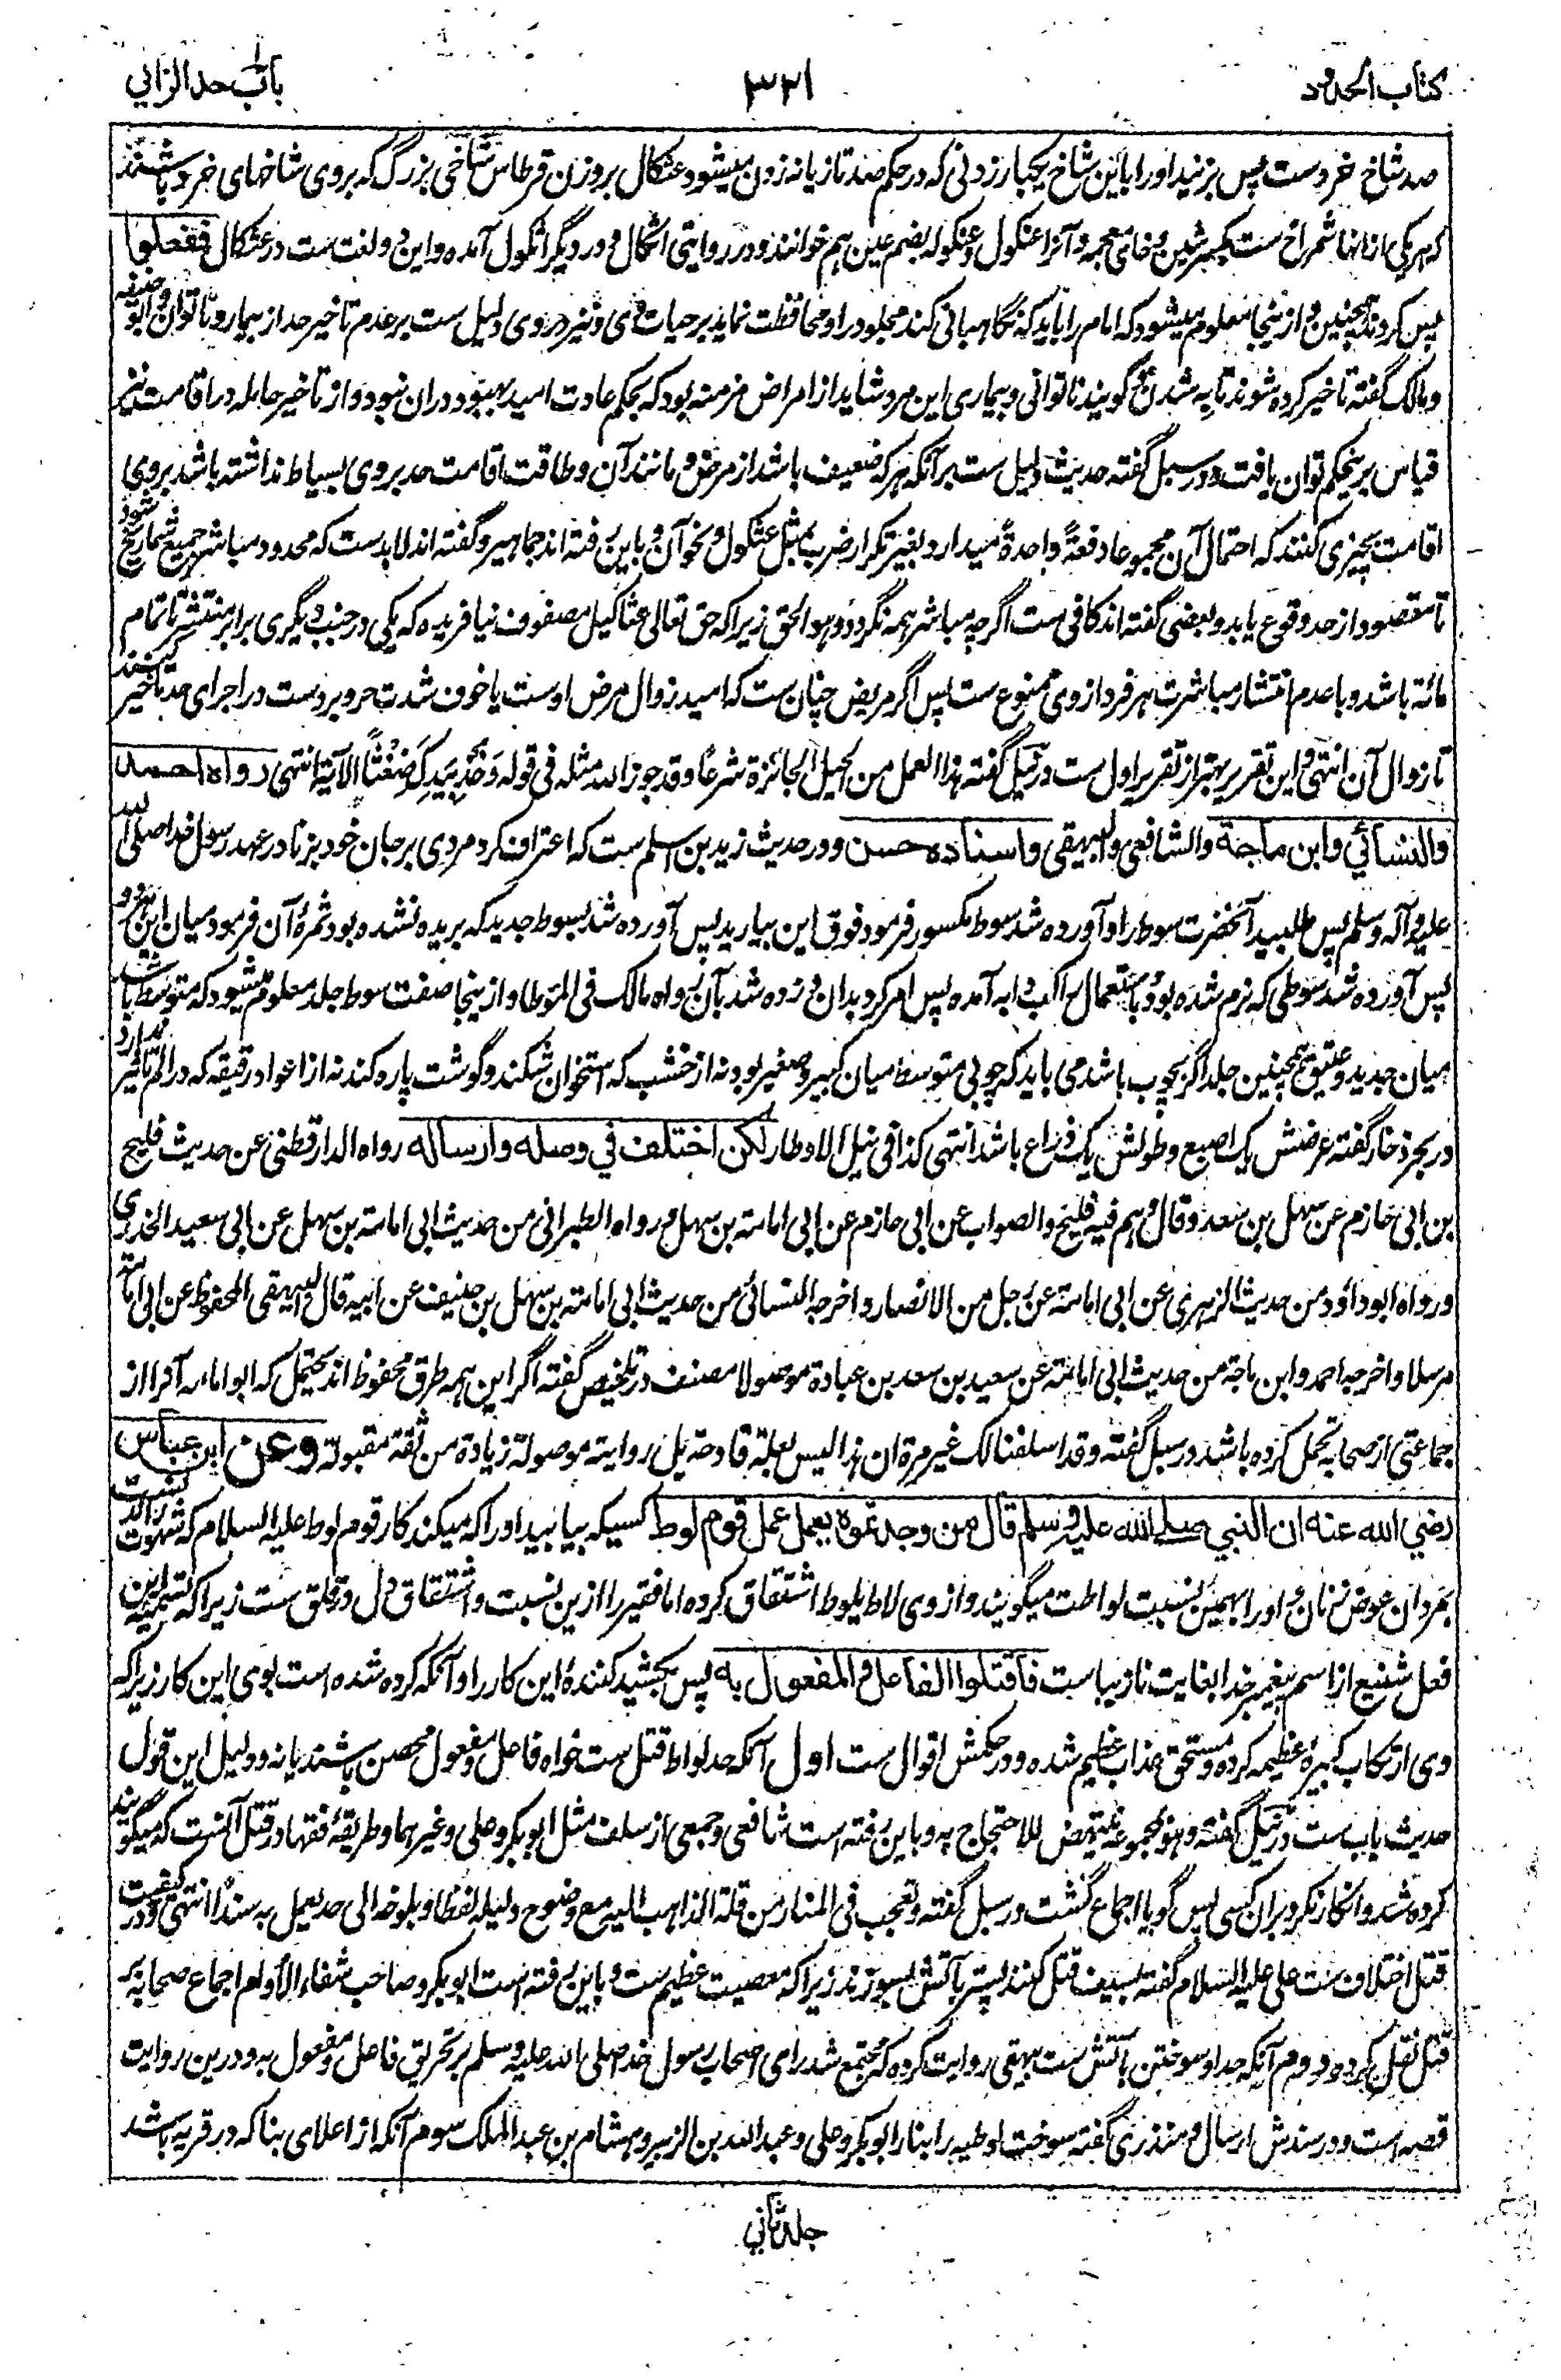 کتاب الحدود
۳۲۱
باب حد الزاني
صد شاخ خردست پس بزنید او را باین شاخ یکبار زدنی که در حکم صد تازیانه زدن میشود عثکال بروزن قرطاس شاخی بزرگ که بروی شاخهای خرد باشند
که هر یکی از انها شمراخ ست بکسر شین و خای معجمه و آنرا عثکول و عثکوله بضم عین هم خوانند و در روایتی اثکال و در دیگر اثکول آمده و این دو لغت ست در عثکال ففعلوا
پس کردند همچنین و ازینجا معلوم میشود که امام را باید که نگاهبانی کند مجلود را و محافظت نماید بر حیات وی و نیز در وی دلیل ست بر عدم تاخیر حد از بیمار و ناتوان و ابو حنیفه
و مالک گفته تاخیر کرده شوند تا به شدن گویند ناتوانی و بیماری این مرد شاید از امراض مزمنه بود که بحکم عادت امید بهبود دران نبود و از تاخیر حامله در اقامت نیز
قیاس برینحکم توان یافت و در سبل گفته حدیث دلیل ست برآنکه هر که ضعیف باشد از مرض و مانند آن و طاقت اقامت حد بروی بسیاط نداشته باشد بروی
اقامت بچیزی کنند که احتمال آن مجموعا دفعةً واحدةً میدارد بغیر تکرار ضرب بمثل عثکول و نحو آن و باین رفته اند جماهیر و گفته اند لابد ست که محدود مباشر جمیع شماریخ شود
تا مقصود از حد وقوع یابد و بعضی گفته اند کافی ست اگرچه مباشر همه نگردد و هو الحق زیراکه حق تعالی عثاکیل مصفوف نیافریده که یکی در جنب دیگری برابر منتشر تا تمام
مائة باشد و با عدم انتشار مباشرت هر فرد از وی ممنوع ست پس اگر مریض چنان ست که امید زوال مرض اوست یا خوف شدت حر و برد ست در اجرای حد تاخیر کنند
تا زوال آن انتهی و این تقریر بهتر از تقریر اول ست و در نیل گفته هذا العمل من الحیل الجائزة شرعا و قد جوز الله مثله فی قوله وَخُذْ بِیَدِکَ ضِغْثًا الآیة انتهی رواه احمد
والنسائي وابن ماجة والشافعی والبیهقی واسناده حسن و در حدیث زید بن اسلم ست که اعتراف کرد مردی بر جان خود بزنا در عهد رسول خدا صلی الله
علیه و آله و سلم پس طلبید آنحضرت سوط را و آورده شد سوط مکسور فرمود فوق این بیارید پس آورده شد بسوط جدید که بریده نشده بود ثمرهٔ آن فرمود میان این هر دو
پس آورده شد سوطی که نرم شده بود باستعمال راکب دابه آمده پس امر کرد بدان و زده شد بآن رواه مالک فی الموطا و ازینجا صفت سوط جلد معلوم میشود که متوسط باشد
میان جدید و عتیق همچنین جلد اگر بچوب باشد می باید که چوبی متوسط میان کبیر و صغیر بود نه از خشب که استخوان شکند و گوشت پاره کند نه از اعواد رقیقه که در الم تاثیر ندارد
در بحر ذخار گفته عرضش یک اصبع و طولش یک ذراع باشد انتهی کذا فی نیل الاوطار لکن اختلف في وصله وارساله رواه الدارقطنی عن حدیث فلیح
بن ابی حازم عن سهل بن سعد و قال وهم فیه فلیح والصواب عن ابی حازم عن ابی امامة بن سهل و رواه الطبرانی من حدیث ابی امامة بن سهل عن ابی سعید الخدری
و رواه ابو داؤد من حدیث الزهری عن ابی امامة عن رجل من الانصار و اخرجه النسائی من حدیث ابی امامة بن سهل بن حنیف عن ابیه قال البیهقی المحفوظ عن ابی امامة
مرسلا و اخرجه احمد و ابن ماجة من حدیث ابی امامة عن سعید بن سعد بن عبادة موصولا مصنف در تلخیص گفته اگر این همه طرق محفوظ اند یحتمل که ابو امامه آنرا از
جماعتی از صحابه تحمل کرده باشد در سبل گفته و قد اسلفنا لک غیر مرة ان هذا لیس بعلة قادحة بل روایته موصولة زیادة من ثقة مقبولة وعن ابن عباس
رضي الله عنه ان النبي صلى الله عليه وسلم قال من وجدتموه يعمل عمل قوم لوط کسیکه بیابید او را که میکند کار قوم لوط علیه السلام که شهوت زانست
بمردان عوض زنان و او را بهمین نسبت لواطت میگویند و از وی لاط یلوط اشتقاق کرده اما فقیر را ازین نسبت و اشتقاق دل در قلق ست زیراکه تسمیه این
فعل شنیع از اسم پیغمبر خدا بغایت نازیباست فاقتلوا الفاعل والمفعول به پس بکشید کنندهٔ این کار را و آنکه کرده شده است بوی این کار زیراکه
وی ارتکاب کبیرهٔ عظیمه کرده و مستحق عذاب عظیم شده و در حکمش اقوال ست اول آنکه حد لواط قتل ست خواه فاعل و مفعول محصن باشند یا نه و دلیل این قول
حدیث باب ست در نیل گفته و هو بمجموعه ینتهض للاحتجاج به و باین رفته است شافعی و جمعی از سلف مثل ابو بکر و علی و غیرهما و طریقهٔ فقها در قتل آنست که میگویند
کرده شد و انکار نکرد بران کسی پس گویا اجماع گشت در سبل گفته و تعجب فی المنار من قلة الذاهب الیه مع وضوح دلیله لفظا و بلوغه الی حد یعمل به سندًا انتهی و در کیفیت
قتل اختلاف ست علی علیه السلام گفته بسیف قتل کنند پستر بآتش بسوزند زیراکه معصیت عظیم ست و باین رفته است ابو بکر و صاحب شفاء الاُوام اجماع صحابه بر
قتل نقل کرده و دوم آنکه حد او سوختن بآتش ست بیهقی روایت کرده که مجتمع شد رای اصحاب رسول خدا صلی الله علیه و سلم بر تحریق فاعل و مفعول به و درین روایت
قصه است و در سندش ارسال و منذری گفته سوخت لوطیه را بنار ابو بکر و علی و عبد الله بن الزبیر و هشام بن عبد الملک سوم آنکه از اعلای بنا که در قریه باشد
جلد ثاني